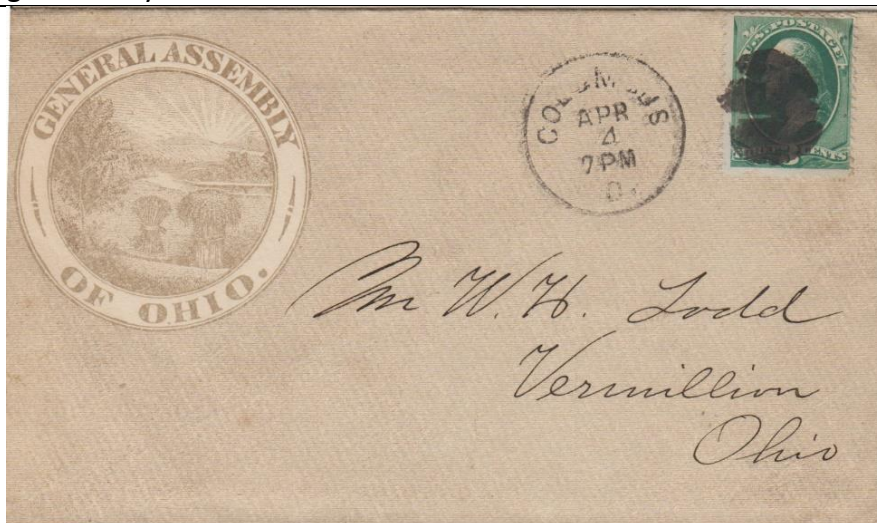 GENERAL ASSEMBLY
OF OHIO.
COLUMBUS
APR
4
7 PM
O.
U.S. POSTAGE
CENTS
Mr W. H. Todd
Vermillion
Ohio